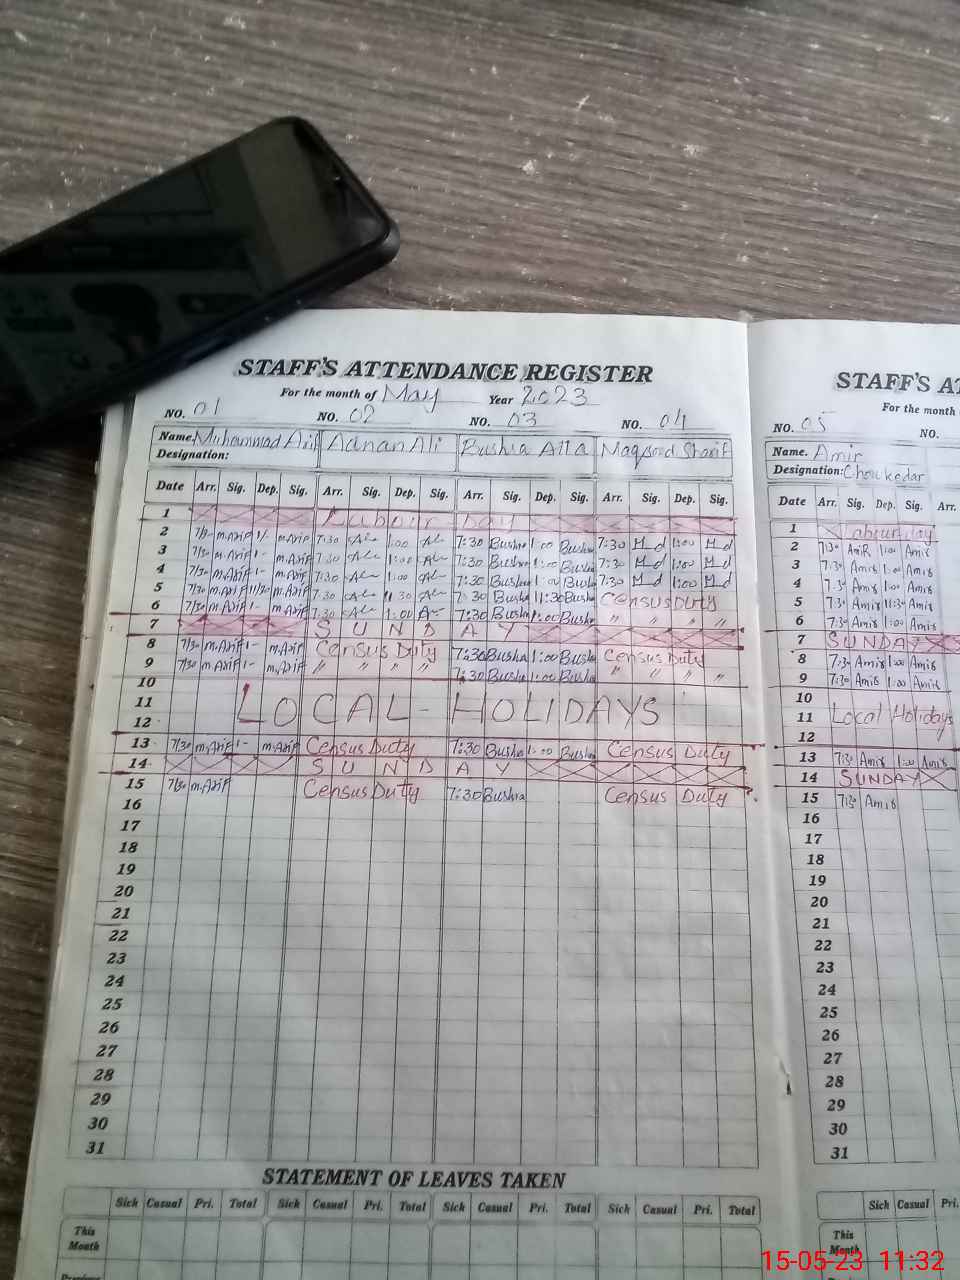 STAFF'S ATTENDANCE REGISTER
For the month of May Year 2023
NO. 01 NO. 02 NO. 03 NO. 04
Name. Muhammad Arif Adnan Ali Bushra Atta Maqsood Sharif
Designation:
Date Arr. Sig. Dep. Sig. Arr. Sig. Dep. Sig. Arr. Sig. Dep. Sig. Arr. Sig. Dep. Sig.
1 Labour Day
2 7/30 m.Arif 1/- m.Arif 7:30 1:00 7:30 Bushra 1:00 Bushra 7:30 1:00
3 7/30 m.Arif 1- m.Arif 7:30 1:00 7:30 Bushra 1:00 Bushra 7:30 1:00
4 7/30 m.Arif 1- m.Arif 7:30 1:00 7:30 Bushra 1:00 Bushra 7:30 1:00
5 7/30 m.Arif 11/30 m.Arif 7:30 11:30 7:30 Bushra 11:30 Bushra Census Duty
6 7/30 m.Arif 1- m.Arif 7:30 1:00 7:30 Bushra 1:00 Bushra " " " "
7 SUNDAY
8 7/30 m.Arif 1- m.Arif Census Duty 7:30 Bushra 1:00 Bushra Census Duty
9 7/30 m.Arif 1- m.Arif " " " " 7:30 Bushra 1:00 Bushra " " " "
10
11 LOCAL-HOLIDAYS
12
13 7/30 m.Arif 1- m.Arif Census Duty 7:30 Bushra 1:00 Bushra Census Duty
14 SUNDAY
15 7/30 m.Arif Census Duty 7:30 Bushra Census Duty
16
17
18
19
20
21
22
23
24
25
26
27
28
29
30
31
STATEMENT OF LEAVES TAKEN
Sick Casual Pri. Total Sick Casual Pri. Total Sick Casual Pri. Total Sick Casual Pri. Total
This
Month
STAFF'S AT
For the month
NO. 05 NO.
Name. Amir
Designation: Chowkedar
Date Arr. Sig. Dep. Sig. Arr.
1 Labour day
2 7:30 Amir 1:00 Amir
3 7:30 Amir 1:00 Amir
4 7:30 Amir 1:00 Amir
5 7:30 Amir 11:30 Amir
6 7:30 Amir 1:00 Amir
7 SUNDAY
8 7:30 Amir 1:00 Amir
9 7:30 Amir 1:00 Amir
10
11 Local Holidays
12
13 7:30 Amir 1:00 Amir
14 SUNDAY
15 7:30 Amir
16
17
18
19
20
21
22
23
24
25
26
27
28
29
30
31
Sick Casual Pri.
This
Month
15-05-23 11:32